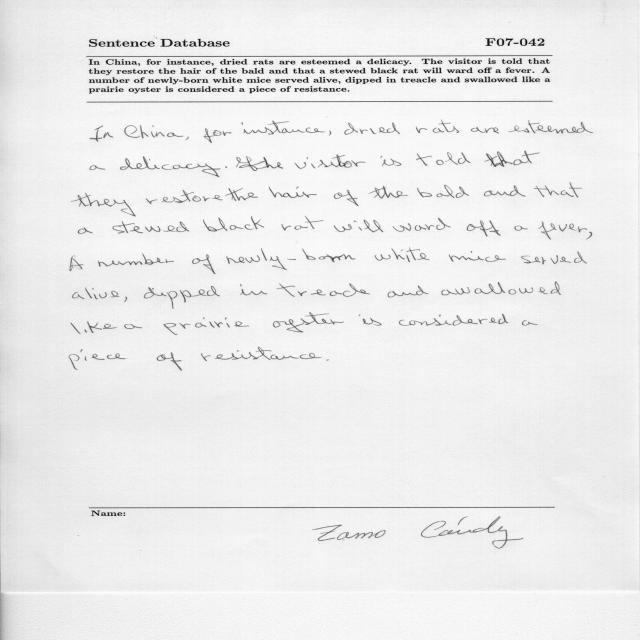 Sentence Database F07-042
In China, for instance, dried rats are esteemed a delicacy. The visitor is told that
they restore the hair of the bald and that a stewed black rat will ward off a fever. A
number of newly-born white mice served alive, dipped in treacle and swallowed like a
prairie oyster is considered a piece of resistance.
In China, for instance, dried rats are esteemed
a delicacy. The visitor is told that
they restore the hair of the bald and that
a stewed black rat will ward off a fever,
A number of newly-born white mice served
alive, dipped in treacle and awallowed
like a prairie oyster is considered a
piece of resistance.
Name:
Zamo